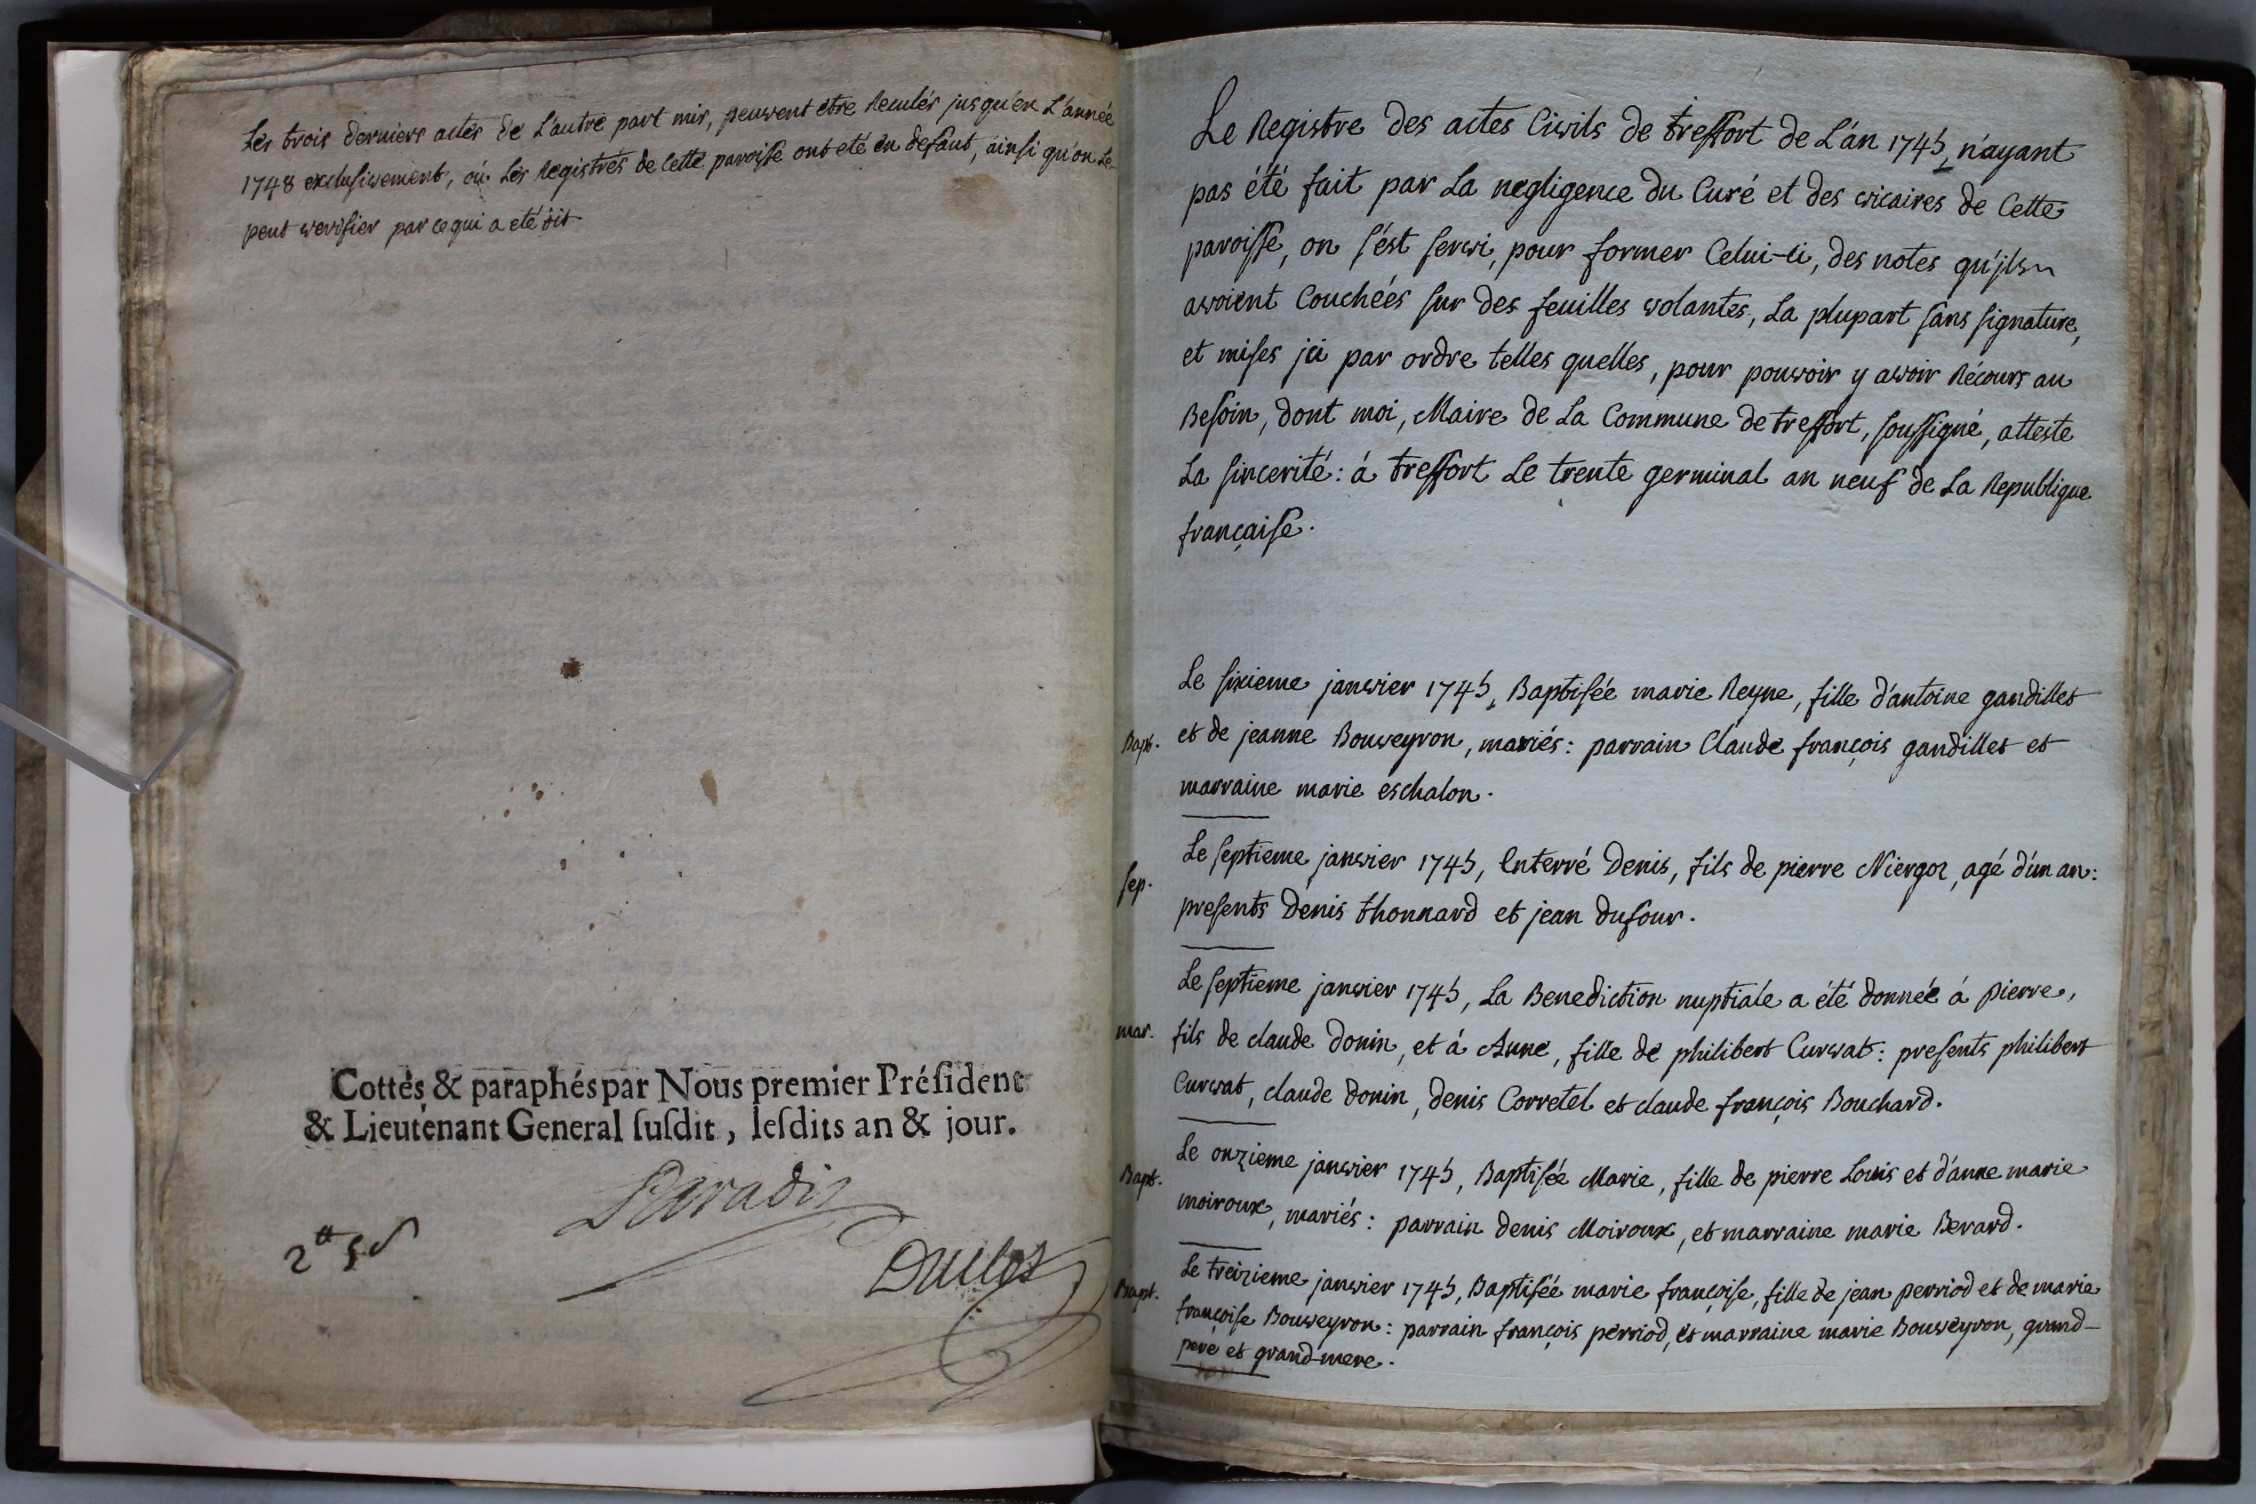 Les trois derniers actes de L'autre part mis, peuvent être Reculés jusqu'en L'année
1748 exclusivement, où Les Registres de Cette paroisse ont eté en defaut, ainsi qu'on Le
peut verifier par ce qui a eté dit.
Cottés & paraphés par Nous premier Préſident
& Lieutenant General ſuſdit, leſdits an & jour.
Paradis
Duclos
Le Registre des actes Civils de treffort de L'an 1745, n'ayant
pas été fait par La negligence du Curé et des vicaires de Cette
paroisse, on s'est servi, pour former Celui-ci, des notes qu'jls
avoient Couchées sur des feuilles volantes, La plupart sans signature,
et mises jci par ordre telles quelles, pour pouvoir y avoir Récours au
Besoin, dont moi, Maire de La Commune de treffort, soussigné, atteste
La sincerité: á treffort Le trente germinal an neuf de La Republique
française.
Le sixieme janvier 1745, Baptisée marie Reyne, fille d'antoine gandillet
Bapt. et de jeanne Bouveyron, mariés: parrain Claude françois gandillet et
marraine marie eschalon.
Le septieme janvier 1745, Enterré Denis, fils de pierre Niergoz, agé d'un an:
sep. presents Denis thonnard et jean dufour.
Le septieme janvier 1745, La Benediction nuptiale a été donnée á pierre,
mar. fils de claude Donin, et á Anne, fille de philibert Curvat: presents philibert
Curvat, claude Donin, Denis Corretel et claude françois Bouchard.
Le onzieme janvier 1745, Baptisée Marie, fille de pierre Louis et d'anne marie
Bapt. moiroux, mariés: parrain Denis Moiroux, et marraine marie Berard.
Le treizieme janvier 1745, Baptisée marie françoise, fille de jean perriod et de marie
Bapt. françoise Bouveyron: parrain françois perriod, et marraine marie Bouveyron, grand-
pere et grand-mere.